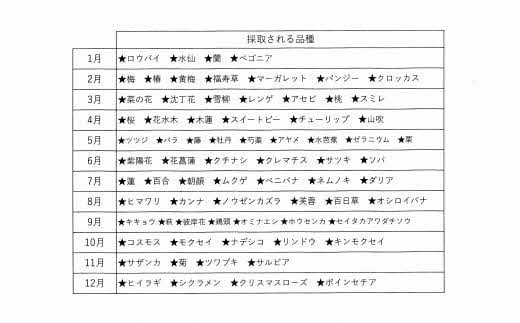 採取される品種
1月 ★ロウバイ ★水仙 ★蘭 ★ベゴニア
2月 ★梅 ★椿 ★黄梅 ★福寿草 ★マーガレット ★パンジー ★クロッカス
3月 ★菜の花 ★沈丁花 ★雪柳 ★レンゲ ★アセビ ★桃 ★スミレ
4月 ★桜 ★花水木 ★木蓮 ★スイートピー ★チューリップ ★山吹
5月 ★ツツジ ★バラ ★藤 ★牡丹 ★芍薬 ★アヤメ ★水芭蕉 ★ゼラニウム ★栗
6月 ★紫陽花 ★花菖蒲 ★クチナシ ★クレマチス ★サツキ ★ソバ
7月 ★蓮 ★百合 ★朝顔 ★ムクゲ ★ベニバナ ★ネムノキ ★ダリア
8月 ★ヒマワリ ★カンナ ★ノウゼンカズラ ★芙蓉 ★百日草 ★オシロイバナ
9月 ★キキョウ ★萩 ★彼岸花 ★鶏頭 ★オミナエシ ★ホウセンカ ★セイタカアワダチソウ
10月 ★コスモス ★モクセイ ★ナデシコ ★リンドウ ★キンモクセイ
11月 ★サザンカ ★菊 ★ツワブキ ★サルビア
12月 ★ヒイラギ ★シクラメン ★クリスマスローズ ★ポインセチア